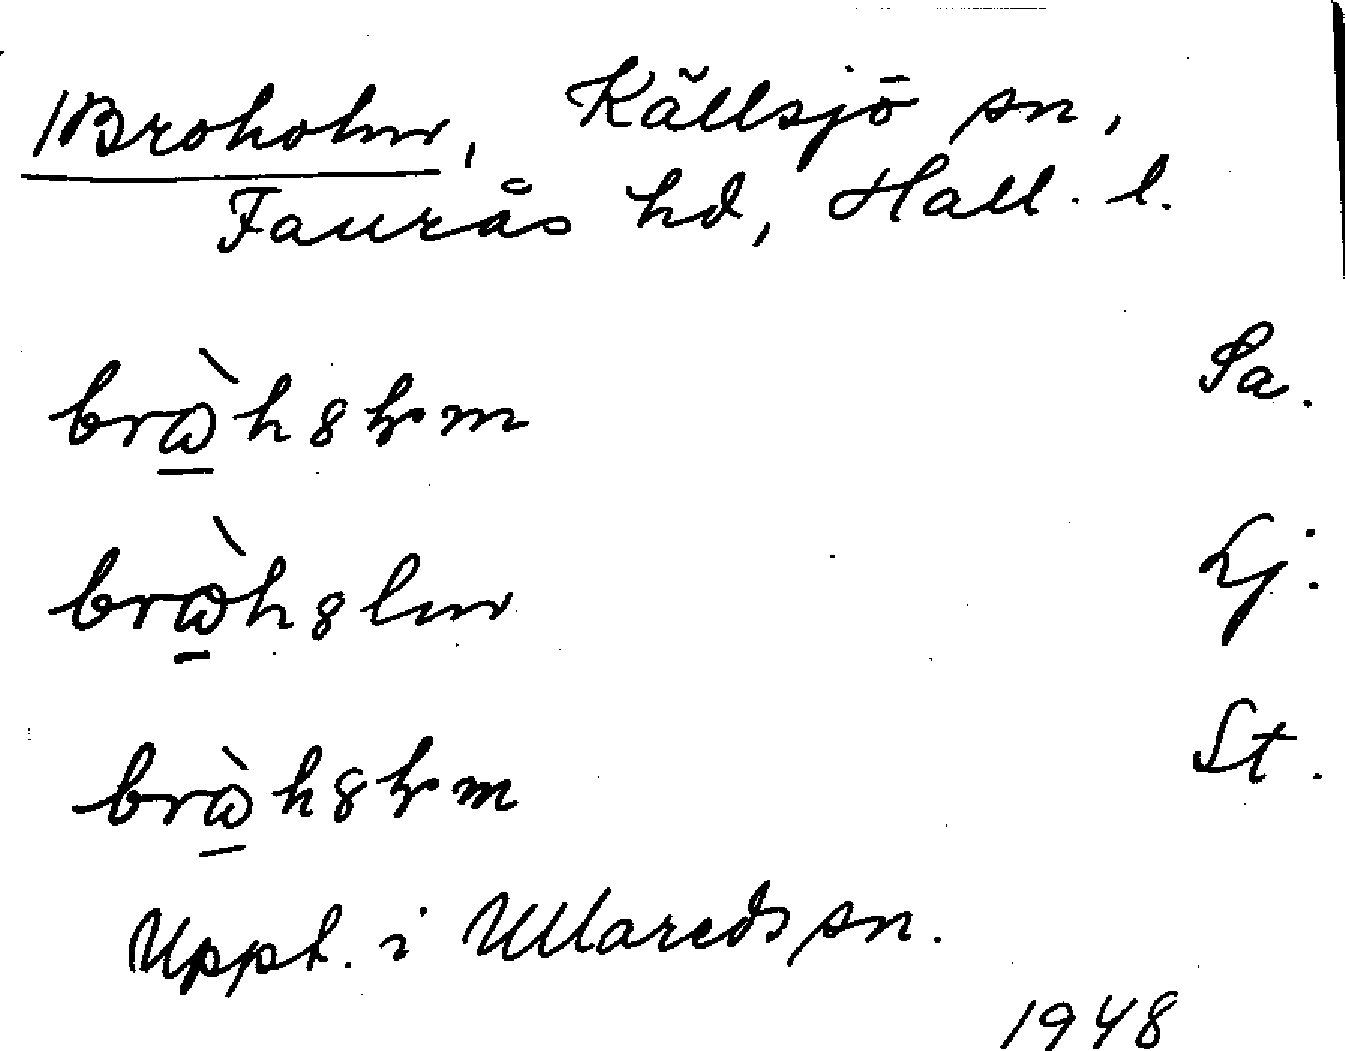 Broholm, Källsjö sn,
Faurås hd, Hall. l.
brὼ̲h8ɫm Sa.
brὼ̲h8lm Lj.
brὼ̲h8ɫm St.
Uppt. i Ullareds sn.
1948